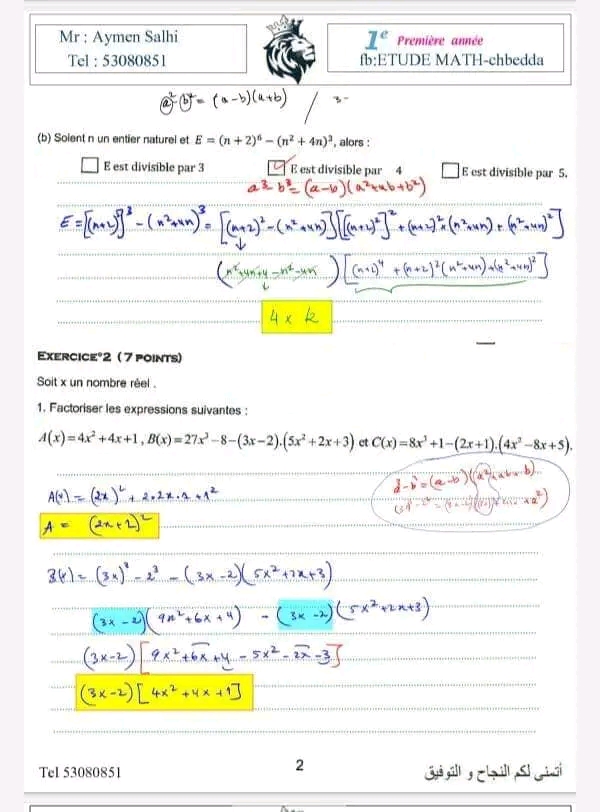 Mr : Aymen Salhi
Tel : 53080851
1e Première année
fb:ETUDE MATH-chbedda
a² - b² = (a-b)(a+b) /
(b) Soient n un entier naturel et E = (n + 2)⁶ − (n² + 4n)³, alors :
E est divisible par 3
E est divisible par 4
E est divisible par 5.
a³ - b³ = (a-b)(a²+ab+b²)
E = [(n+2)²]³ - (n²+4n)³ = [(n+2)² - (n²+4n)][[(n+2)²]² + (n+2)²×(n²+4n) + (n²+4n)²]
(n²+4n+4-n²-4n) [(n+2)⁴ + (n+2)²(n²+4n) + (n²+4n)²]
4 x k
EXERCICE°2 (7 POINTS)
Soit x un nombre réel .
1. Factoriser les expressions suivantes :
A(x)=4x²+4x+1 , B(x)=27x³−8−(3x−2).(5x²+2x+3) et C(x)=8x³+1−(2x+1).(4x²−8x+5).
a³-b³=(a-b)(a²+ab+b²)
A(x) = (2x)² + 2.2x.1 + 1²
A = (2x+1)²
B(x) = (3x)³ - 2³ - (3x-2)(5x²+2x+3)
(3x-2)(9x²+6x+4) - (3x-2)(5x²+2x+3)
(3x-2)[9x²+6x+4-5x²-2x-3]
(3x-2)[4x²+4x+1]
Tel 53080851
2
أتمنى لكم النجاح و التوفيق